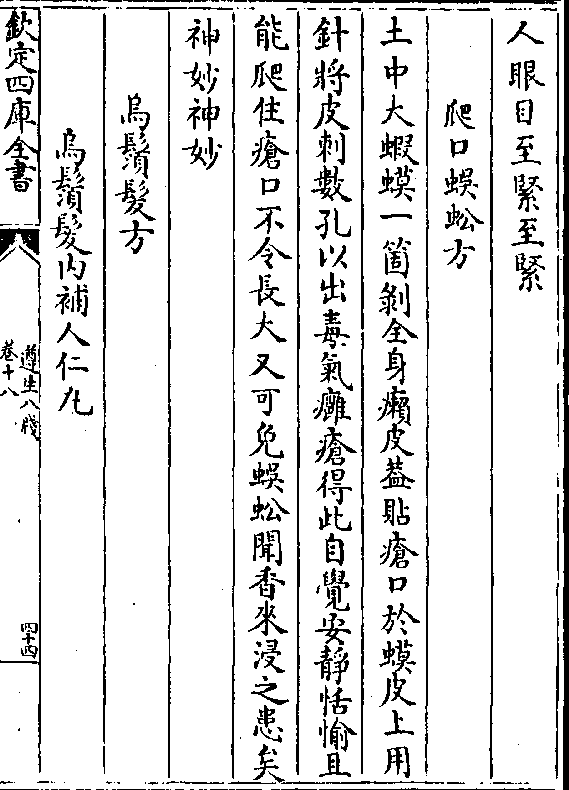 人眼目至緊至緊
爬口蜈蚣方
土中大蝦蟆一箇剝全身癩皮葢貼瘡口於蟆皮上用
針將皮刺數孔以出毒氣癰瘡得此自覺安靜恬愉且
能爬住瘡口不令長大又可免蜈蚣聞香來浸之患矣
神妙神妙
烏鬚髮方
烏鬚髮內補人仁丸
欽定四庫全書
遵生八牋
卷十八
四十四